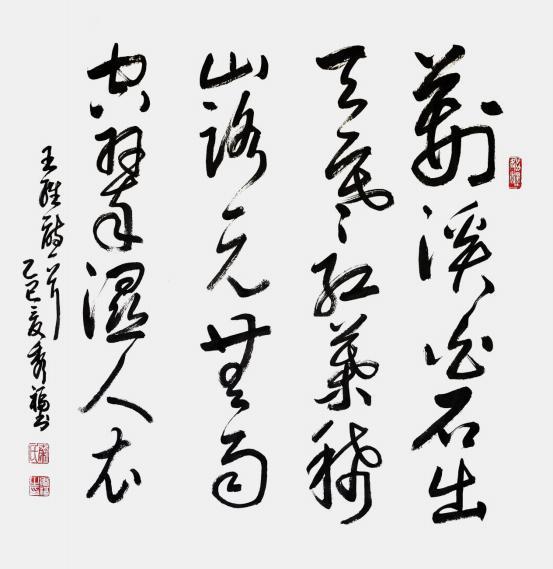 荆溪白石出
天寒红葉稀
山路元無雨
空翠濕人衣
王維詩一首 乙巳夏秀福书